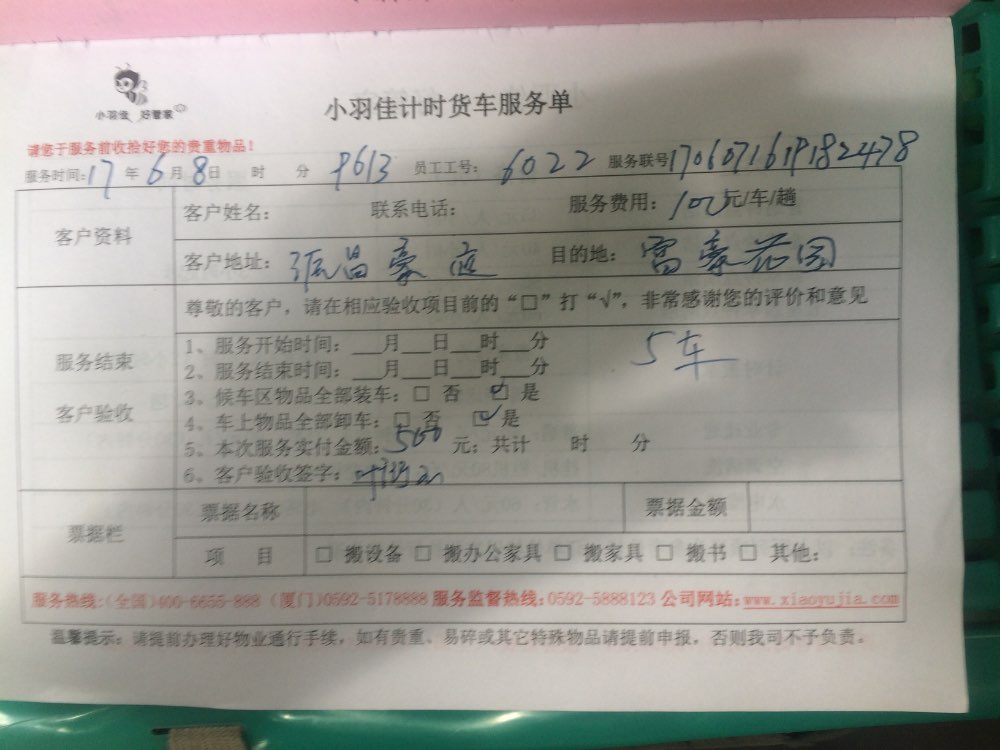 小羽佳 好管家
小羽佳计时货车服务单
请您于服务前收捡好您的贵重物品！
服务时间：17 年 6 月 8 日 时 分 9613 员工工号： 6022 服务联号 1706071619182478
客户资料
客户姓名： 联系电话： 服务费用：100元/车/趟
客户地址： 昌豪庭 目的地： 富豪花园
尊敬的客户，请在相应验收项目前的“□”打“√”，非常感谢您的评价和意见
服务结束
客户验收
1、服务开始时间：___月___日___时___分
5车
2、服务结束时间：___月___日___时___分
3、候车区物品全部装车：□ 否 ☑ 是
4、车上物品全部卸车：□ 否 ☑ 是
5、本次服务实付金额：500 元；共计 时 分
6、客户验收签字：
票据栏
票据名称 票据金额
项 目 □ 搬设备 □ 搬办公家具 □ 搬家具 □ 搬书 □ 其他：
服务热线：(全国)400-6655-888 (厦门)0592-5178888 服务监督热线：0592-5888123 公司网站：www.xiaoyujia.com
温馨提示：请提前办理好物业通行手续，如有贵重、易碎或其它特殊物品请提前申报，否则我司不予负责。